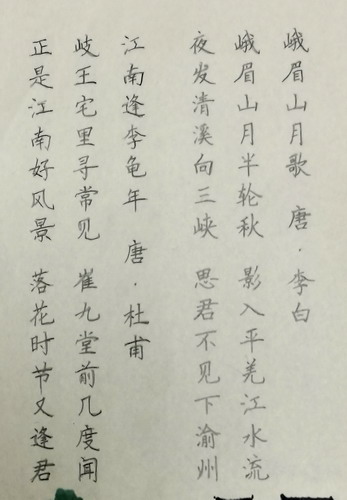 峨眉山月歌 唐·李白
峨眉山月半轮秋 影入平羌江水流
夜发清溪向三峡 思君不见下渝州
江南逢李龟年 唐·杜甫
岐王宅里寻常见 崔九堂前几度闻
正是江南好风景 落花时节又逢君